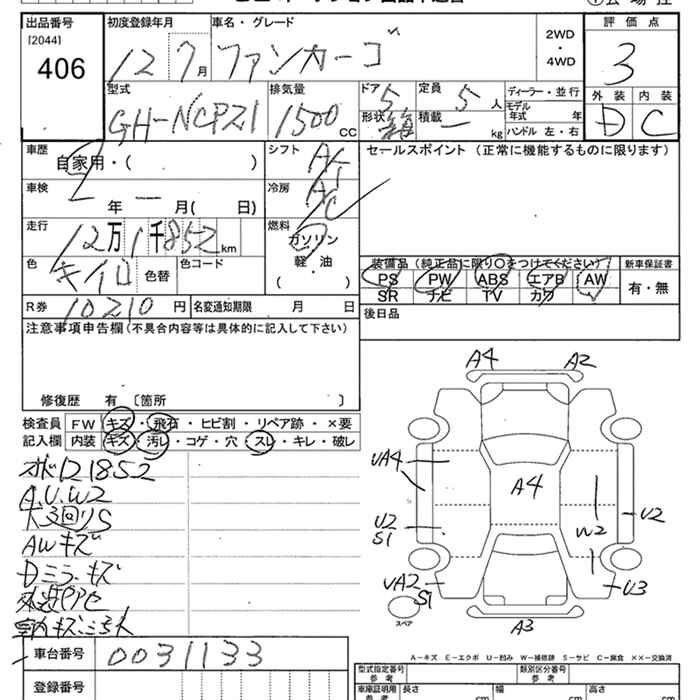 出品番号
[2044]
406
初度登録年月
12 7月
車名・グレード
ファンカーゴ
2WD
・
4WD
評価点
3
型式
GH-NCP21
排気量
1500 CC
ドア 5
形状 箱
定員 5 人
積載 ー kg
ディーラー・並行
モデル年式 年
ハンドル 左・右
外装 内装
D C
車歴
自家用・( )
シフト AT
車検
ー年ー月( 日)
冷房 AC
走行
12万1千852km
燃料
ガソリン
軽・油
( )
色
キイロ
色替
色コード
R券 10210円
名変通知期限 月 日
セールスポイント(正常に機能するものに限ります)
装備品(純正品に限り〇をつけてください)
PS PW ABS エアB AW
SR ナビ TV カワ
新車保証書
有・無
後日品
注意事項申告欄(不具合内容等は具体的に記入して下さい)
修復歴 有 〔箇所 〕
検査員
記入欄
FW キズ・飛石・ヒビ割・リペア跡・×要
内装 キズ・汚レ・コゲ・穴・スレ・キレ・破レ
オドロ121852
A.U.W2
大3回りS
AWキズ
Dミラーキズ
A4 A2
UA4
A4
U2
S1
W2
U2
UA2
S1
U3
A3
スペア
車台番号 0031133
登録番号
A-キズ E-エクボ U-凹み W-補修跡 S-サビ C-腐食 ××-交換済
型式指定番号
参考
類別区分番号
参考
車庫証明用
参考
長さ cm
幅 cm
高さ cm